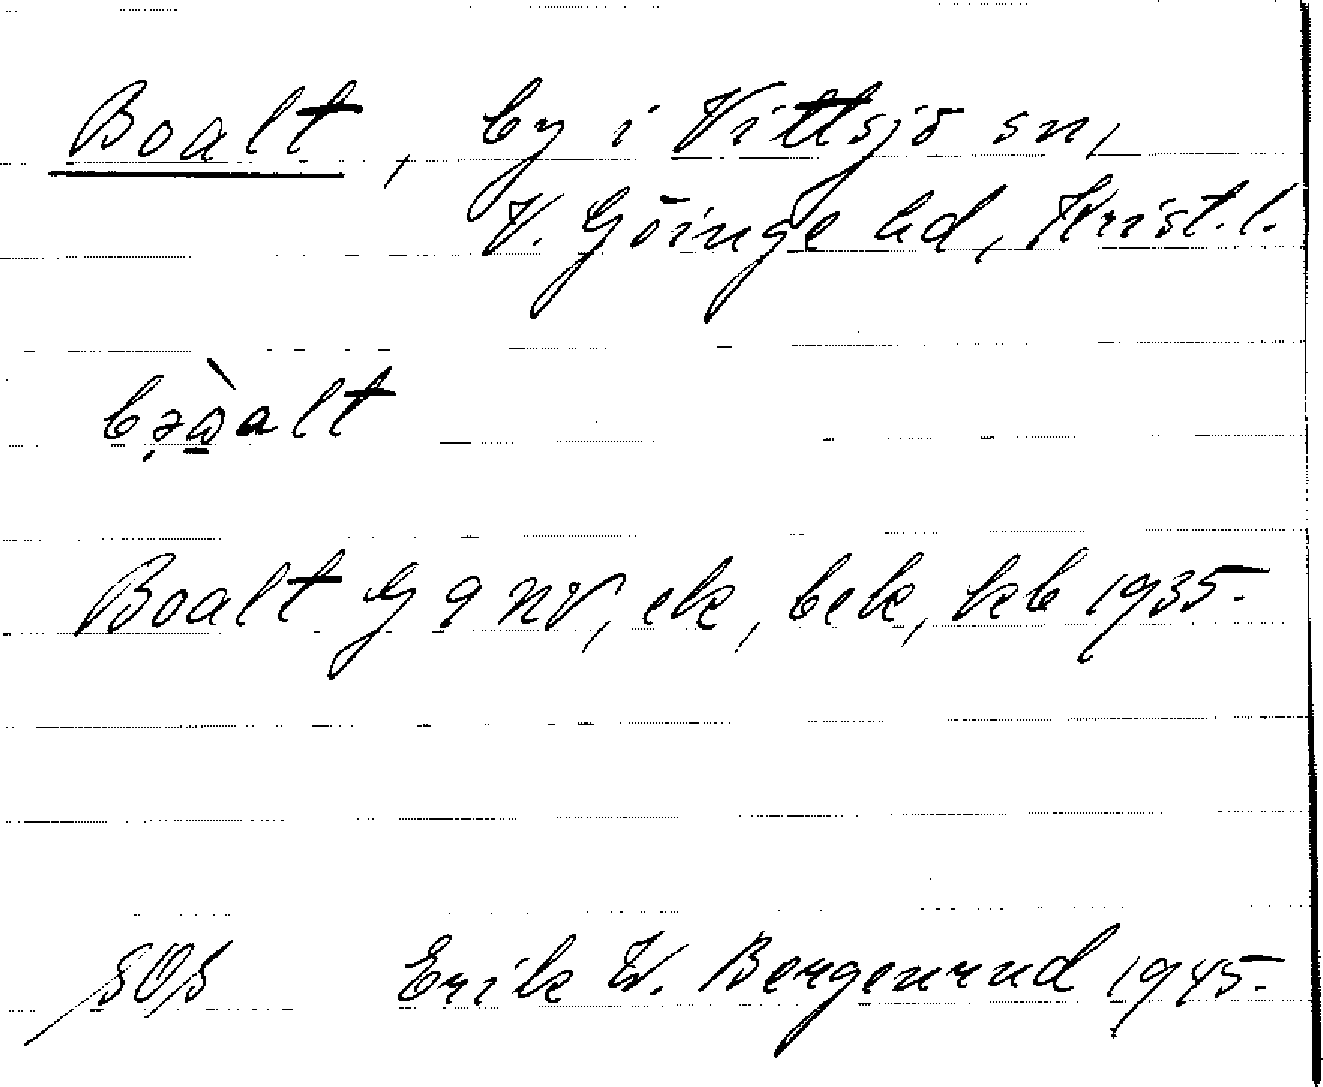 Boalt, by i Vittsjö sn,
V. Göinge hd, Krist. l.
Boalt G 9 NV, ek, bek, kb 1935.
Erik W. Bergenrud 1945.